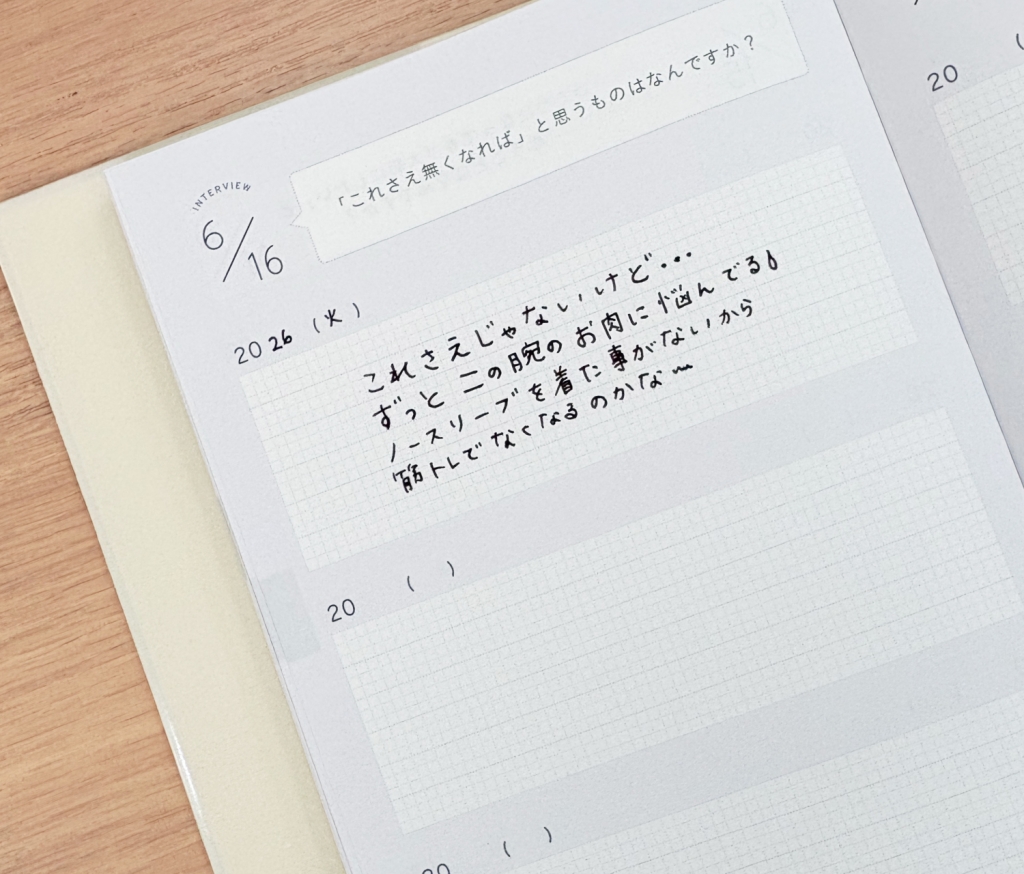 「これさえ無くなれば」と思うものはなんですか？
INTERVIEW
6/16
2026 (火)
これさえじゃないけど…
ずっと二の腕のお肉に悩んでる
ノースリーブを着た事がないから
筋トレでなくなるのかな〰
20 ( )
20 ( )
20 (